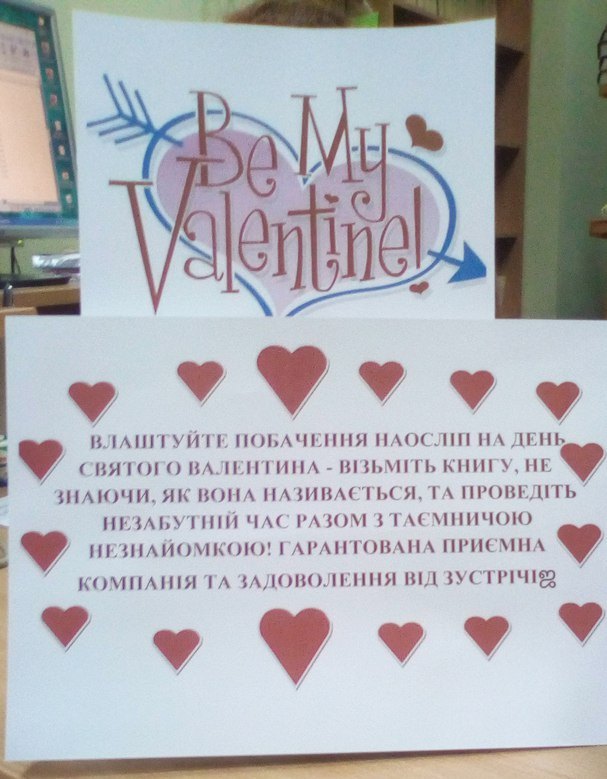 Be My
Valentine!
ВЛАШТУЙТЕ ПОБАЧЕННЯ НАОСЛІП НА ДЕНЬ
СВЯТОГО ВАЛЕНТИНА - ВІЗЬМІТЬ КНИГУ, НЕ
ЗНАЮЧИ, ЯК ВОНА НАЗИВАЄТЬСЯ, ТА ПРОВЕДІТЬ
НЕЗАБУТНІЙ ЧАС РАЗОМ З ТАЄМНИЧОЮ
НЕЗНАЙОМКОЮ! ГАРАНТОВАНА ПРИЄМНА
КОМПАНІЯ ТА ЗАДОВОЛЕННЯ ВІД ЗУСТРІЧІஜ